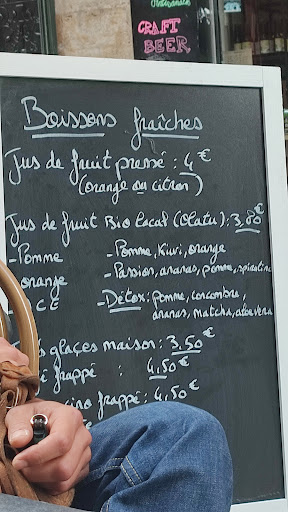 CRAFT
BEER
Boissons fraîches
Jus de fruit pressé : 4€
(orange ou citron)
Jus de fruit Bio local (Olatu) : 3,80€
- Pomme
- Pomme, Kiwi, orange
orange
- Passion, ananas, pomme, spiruline
CE
- Détox : pomme, concombre,
ananas, matcha, aloe vera
s glaçes maison : 3.50€
frappé : 4,50€
ino frappé : 4,50€